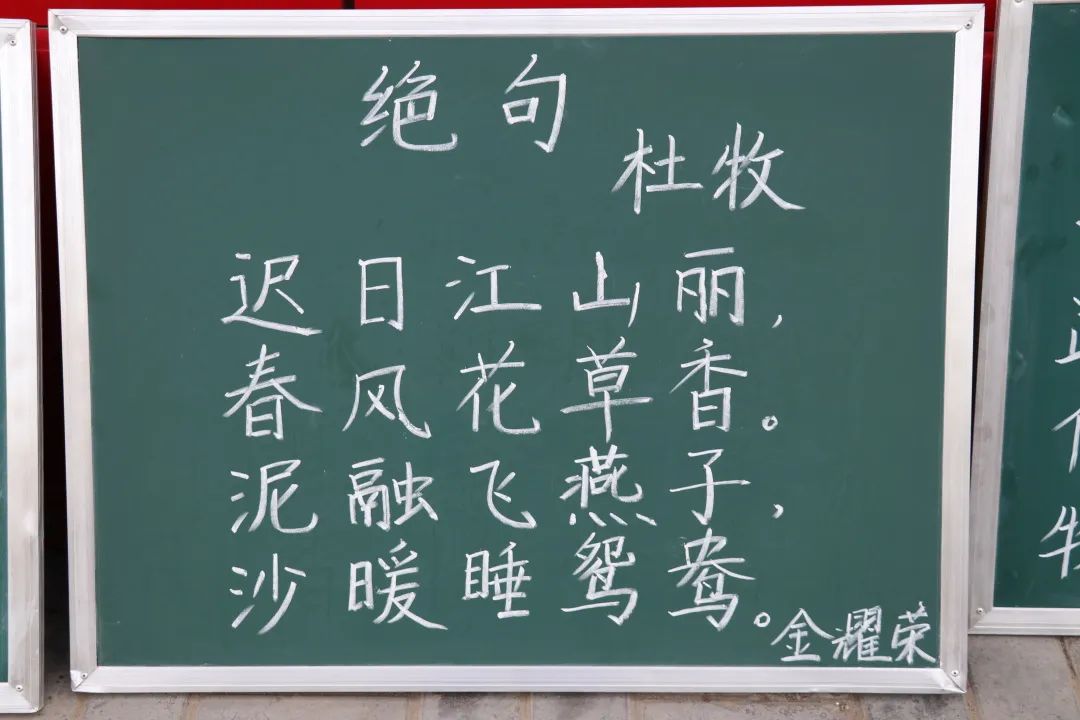 绝句
杜牧
迟日江山丽，
春风花草香。
泥融飞燕子，
沙暖睡鸳鸯。
金耀荣